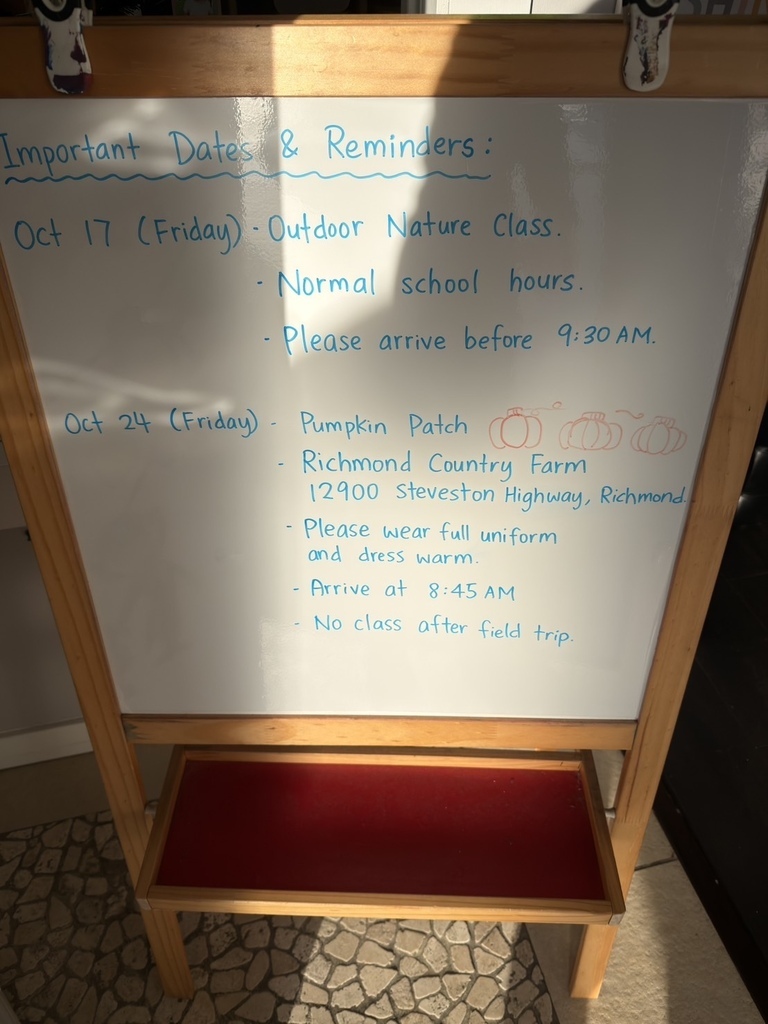 Important Dates & Reminders:
Oct 17 (Friday) - Outdoor Nature Class.
- Normal school hours.
- Please arrive before 9:30 AM.
Oct 24 (Friday) - Pumpkin Patch
- Richmond Country Farm
12900 Steveston Highway, Richmond.
- Please wear full uniform
and dress warm.
- Arrive at 8:45 AM
- No class after field trip.